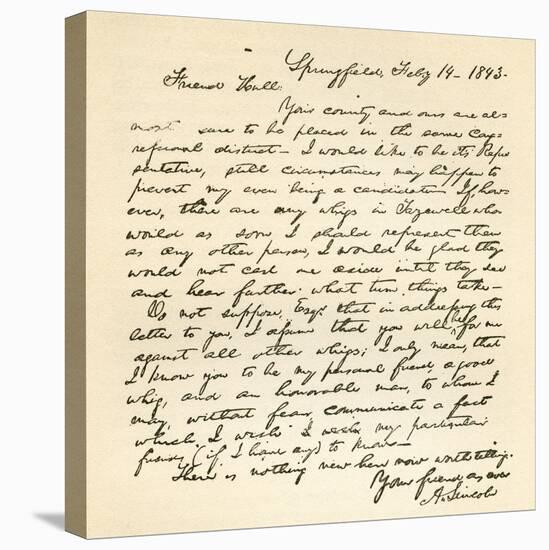 Springfield, Feby 14 - 1843 -
Friend Hull:
Your county and ours are al=
most sure to be placed in the same Con=
gressional district - I would like to be its Repre
sentative, still circumstances may happen to
prevent my even being a candidate - If, how=
ever, there are any whigs in Tazewell who
would as soon I should represent them
as any other person, I would be glad they
would not cast me aside until they see
and hear farther what turn things take -
Do not suppose, Esqr. that in addressing this
letter to you, I assume that you will be for me
against all other whigs; I only mean, that
I know you to be my personal friend, a good
whig, and an honorable man, to whom I
may, without fear, communicate a fact
which I wish my particular
friends (if I have any) to know -
There is nothing new here now worth telling.
Your friend as ever
A. Lincoln